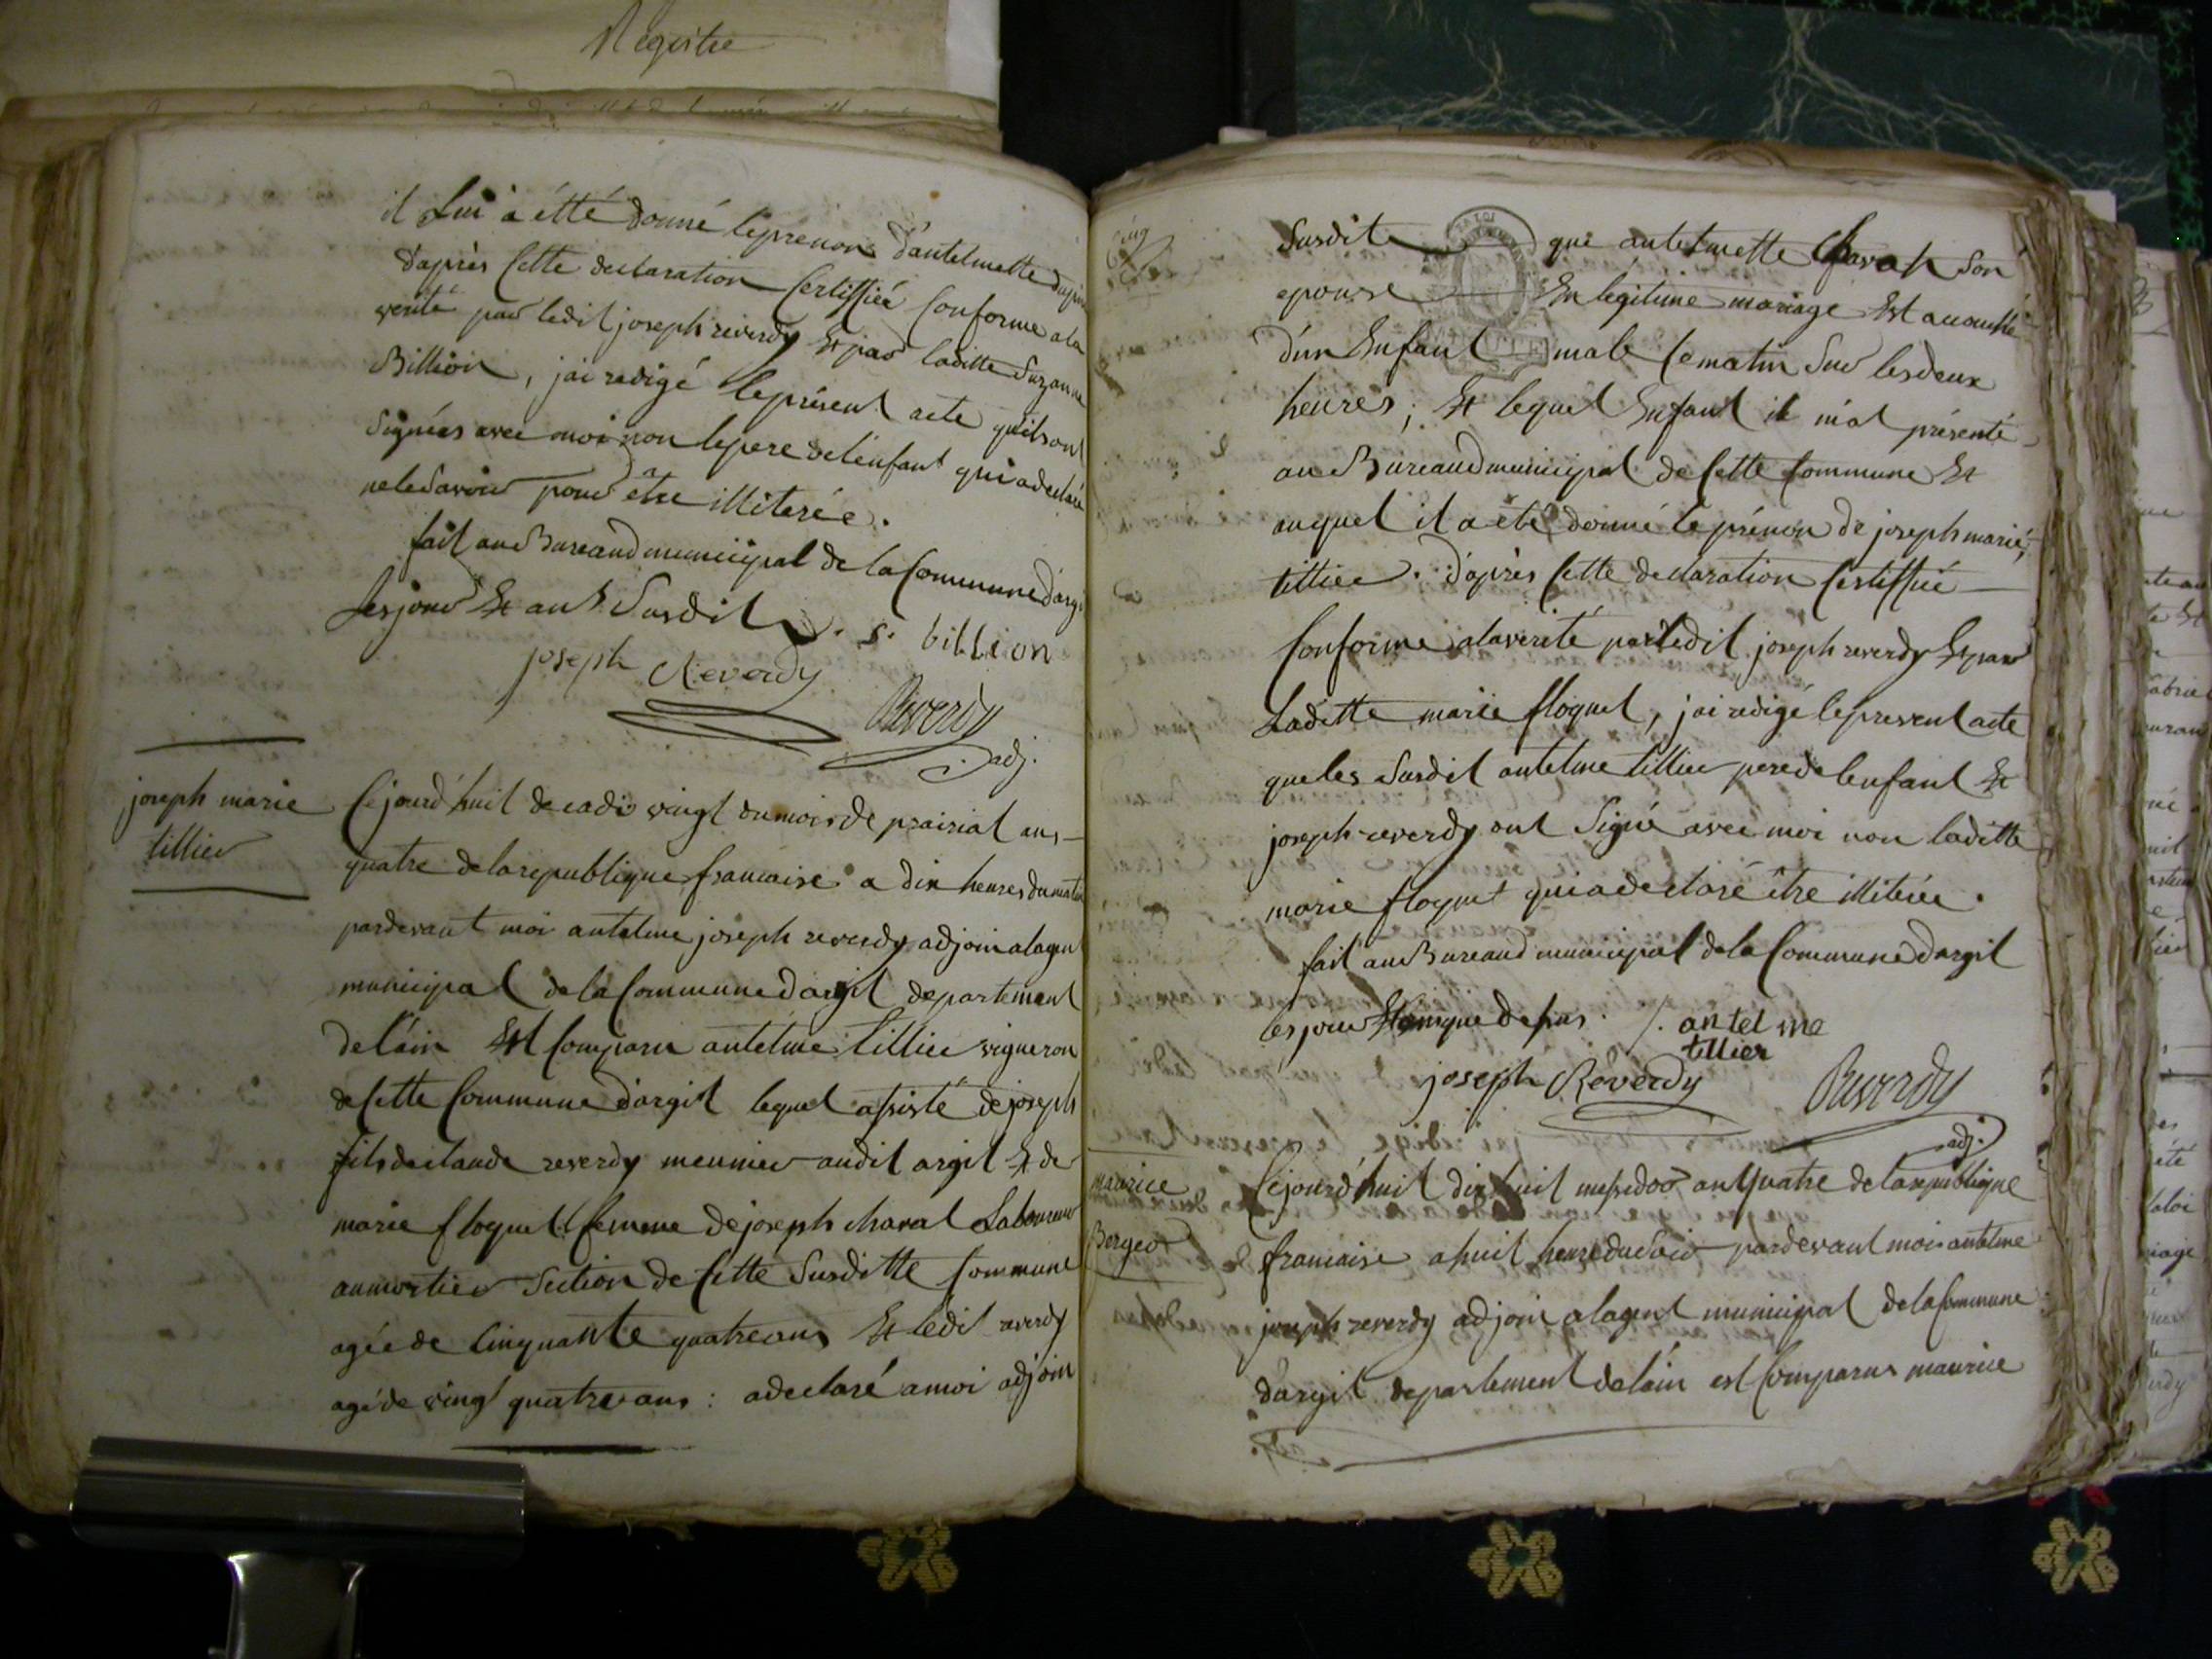 Registre
il lui à étté donné leprenom d'antelmette
d'apprès cette declaration certiffiée conforme ala
verité par ledit joseph reverdy et par laditte Suzanne
Billion, jai redigé leprésent acte quils ont
Signées avec moi non lepere delenfant qui adeclaré
nele Savoir pour être illiterée.
fait au Bureaud municipal de la Commune dargi
les jour et an Susdit. s. billion
joseph Reverdy
Reverdy
adj.
joseph marie
tillier
Cejourd'huit decadi vingt dumois de prairial ans
quatre delarepublique francaise a dix heures dumatin
pardevant moi antelme joseph reverdy adjoin alagen
municipal de la Commune dargit departement
de l'ain est comparu antelme tillier vigneron
de cette Commune dargit lequel assisté de joseph
fils declaude reverdy meunier audit argit et de
marie floquet femme de joseph charat Laboureur
aumortier Section de cette Susditte Commune
agée de cinquante quatre ans et ledit reverdy
agé de vingt quatre ans : adeclaré amoi adjoin
cinq
Susdit que antelmette Charat Son
epouse en legitime mariage est accouché
d'un Enfant male ce matin Sur les deux
heures ; et lequel Enfant il m'at présenté
au Bureaud municipal de cette Commune et
auquel il a été donné le prénon de joseph marie
tillier. d'après cette declaration certiffié
Conforme alaverité par ledit joseph reverdy et par
Laditte marie floquet, jai redigé lepresent acte
queles Susdit antelme tillier perede lenfant et
joseph reverdy ont Signé avec moi non laditte
marie floquet quiadeclaré être illiterée.
fait au Bureaud municipal de la Commune dargit
les jour et an que desus. antelme
tillier
joseph Reverdy Reverdy
adj.
maurice
Berger
Cejourd'huit dix huit messidor an quatre de larepublique
francaise ahuit heure du soir pardevant moi antelme
joseph reverdy adjoin alagent municipal de la Commune
dargit departement de lain est comparus maurice